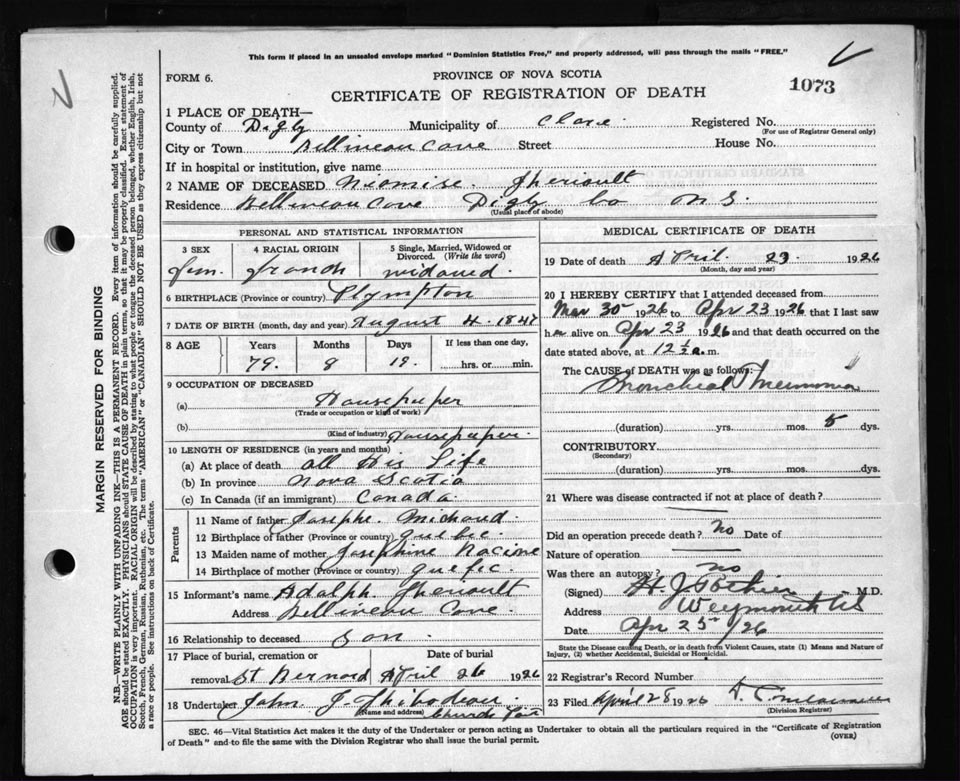 This form if placed in an unsealed envelope marked "Dominion Statistics Free," and properly addressed, will pass through the mails "FREE."
FORM 6.
PROVINCE OF NOVA SCOTIA
1073
CERTIFICATE OF REGISTRATION OF DEATH
1 PLACE OF DEATH—
County of Digby Municipality of Clare. Registered No.
(For use of Registrar General only)
City or Town Bellineau Cove Street House No.
If in hospital or institution, give name
2 NAME OF DECEASED Niomise. Theriault
Residence Bellineau Cove Digby Co N S.
(Usual place of abode)
PERSONAL AND STATISTICAL INFORMATION
3 SEX 4 RACIAL ORIGIN 5 Single, Married, Widowed or Divorced. (Write the word)
fem. franch widoued.
6 BIRTHPLACE (Province or country) Plympton
7 DATE OF BIRTH (month, day and year) August 4. 1847
8 AGE Years Months Days If less than one day,
79. 8 19. hrs. or min.
9 OCCUPATION OF DECEASED
(a) Housepeeper
(Trade or occupation or kind of work)
(b) Housepeeper.
(Kind of industry)
10 LENGTH OF RESIDENCE (in years and months)
(a) At place of death all His Life
(b) In province Nova Scotia
(c) In Canada (if an immigrant) Canada.
Parents
11 Name of father Josephe. Michaud.
12 Birthplace of father (Province or country) Quebec.
13 Maiden name of mother Josephine Racine
14 Birthplace of mother (Province or country) Quefic.
15 Informant's name Adolph Theriault
Address Bellineau Cove.
16 Relationship to deceased Son.
17 Place of burial, cremation or removal Date of burial
St Bernard April 26 1926
18 Undertaker John. J. Thibodeau
(Name and address) Church Point
MEDICAL CERTIFICATE OF DEATH
19 Date of death April. 23. 1926
(Month, day and year)
20 I HEREBY CERTIFY that I attended deceased from
Mar 30 1926 to Apr 23 1926 that I last saw
her alive on Apr 23 1926 and that death occurred on
date stated above, at 12½ a.m.
The CAUSE OF DEATH was as follows:
Broncheal Pneumonia
(duration) yrs. mos. 5 dys.
CONTRIBUTORY.
(Secondary)
(duration) yrs. mos. dys.
21 Where was disease contracted if not at place of death?
Did an operation precede death? No Date of
Nature of operation
Was there an autopsy? no
(Signed) H. J. Pothier M.D.
Address Weymouth NS
Date Apr 25 /26
State the Disease causing Death, or in death from Violent Causes, state (1) Means and Nature of
Injury, (2) whether Accidental, Suicidal or Homicidal.
22 Registrar's Record Number
23 Filed April 28 1926
(Division Registrar)
SEC. 46—Vital Statistics Act makes it the duty of the Undertaker or person acting as Undertaker to obtain all the particulars required in the "Certificate of Registration
of Death" and to file the same with the Division Registrar who shall issue the burial permit.
(OVER)
MARGIN RESERVED FOR BINDING
N.B.—WRITE PLAINLY WITH UNFADING INK—THIS IS A PERMANENT RECORD. Every item of information should be carefully supplied.
AGE should be stated EXACTLY. PHYSICIANS should STATE CAUSE OF DEATH in plain terms, so that it may be properly classified. Exact statement of
OCCUPATION is very important. RACIAL ORIGIN will be described by stating to what people or tongue the deceased person belonged, whether English, Irish,
Scotch, French, German, Russian, Ruthenian, etc. The terms "AMERICAN" or "CANADIAN" SHOULD NOT BE USED as they express citizenship but not
a race or people. See instructions on back of Certificate.